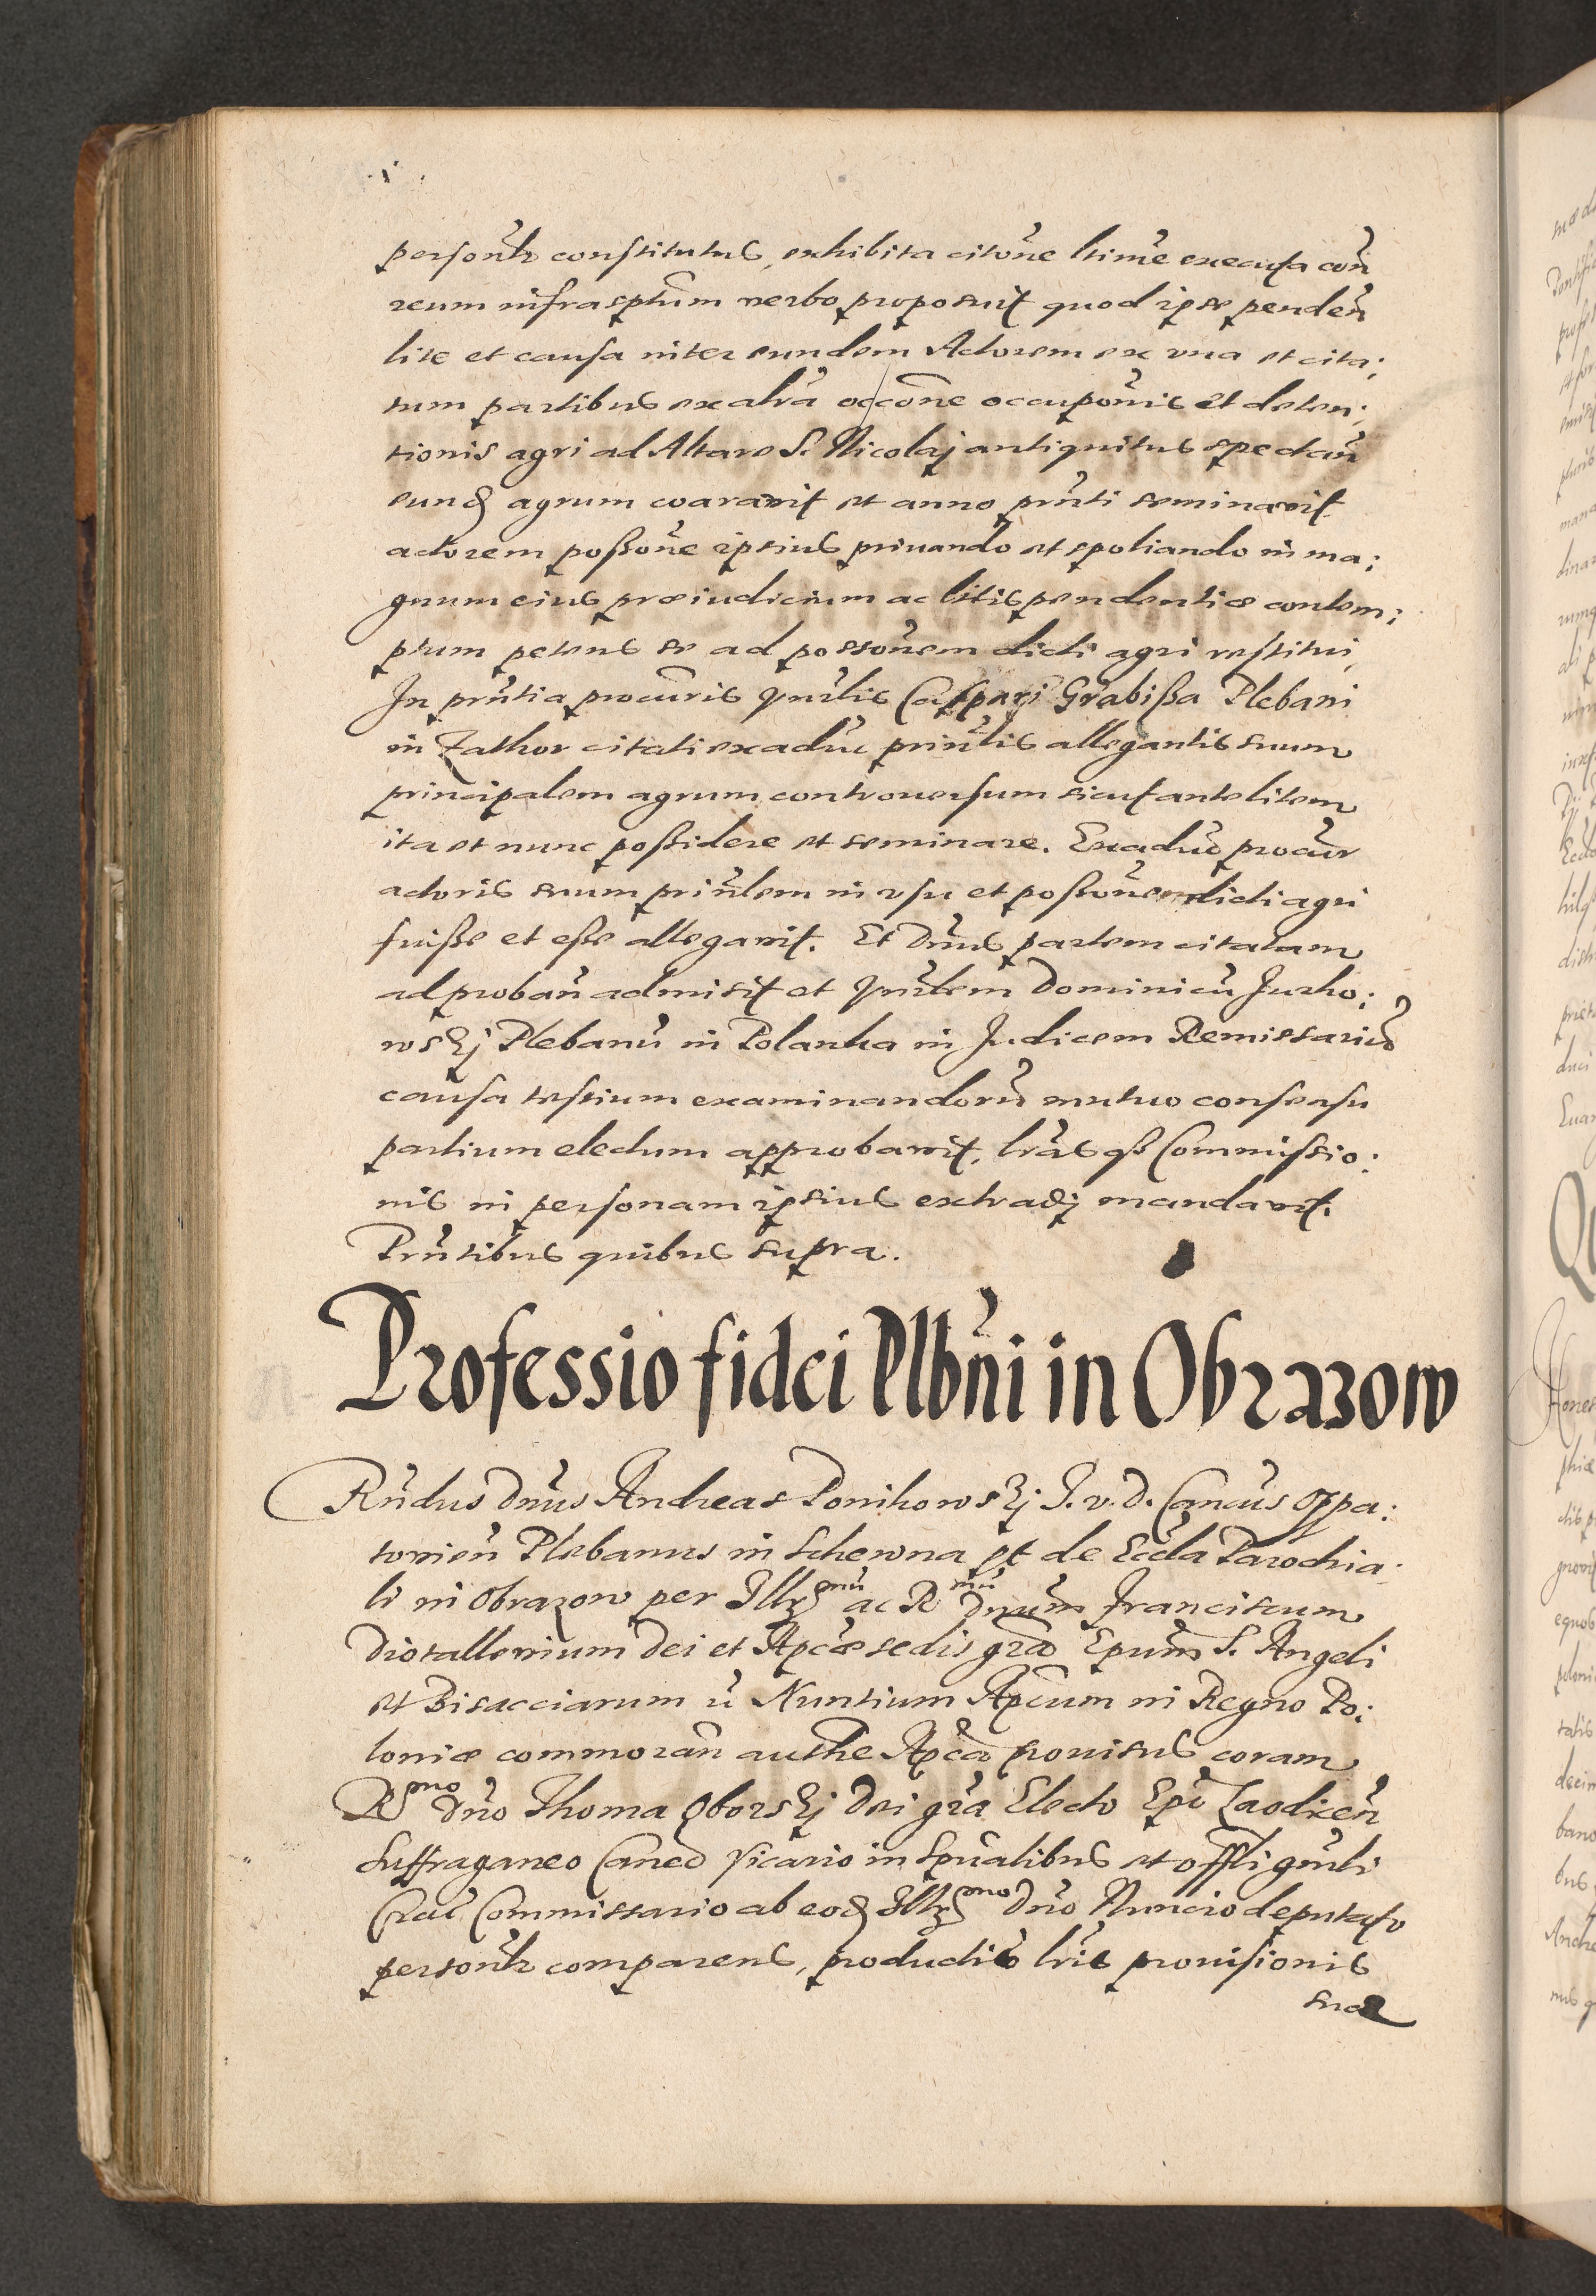 personlr constitutus, exhibita citõne ltime executa con̄
reum infrasptum verbo proposuit quod ipse penden̄
lite et causa inter eundem Actorem ex vna et cita;
tum partibus ex altrā occõne occupõnis et deten;
tionis agri ad Altare S. Nicolaj antiquitus spectan̄
eund agrum coaravit et anno prn̄ti seminavit
actorem poßõne ipsius privando et spoliando in ma;
gnum eius præiudicium ac litis pendentiæ contem;
ptum petens se ad possõnem dicti agri restitui,
In prn̄tia procuris Vnrlis Caspari Grabißa Plebani
in Zathor citati ex aduc prin̄lis allegantis suum
principalem agrum controuersum sicut ante litem
ita et nunc poßidere et seminare. Ex aduc procur
actoris suum prin̄lem in vsu et poßõne dicti agri
fuiße et eße allegavit. Et Dn̄us partem citatam
ad proban̄ admisit et Vnrlem Dominicū Jurko;
wskj Plebanū in Polanka in Judicem Remissariū
causa testium examinandorū mutuo consensu
partium electum approbavit, lrās qȝ Commissio;
nis in personam ipsius extradj mandavit.
Prn̄tibus quibus supra.
Professio fidei Plbn̄i in Obrazow
Rn̄dus Dn̄us Andreas Ponikowskj J. v. D. Canc̄us Oppa;
tovien̄ Plebanus in Schewna et de Eccla Parochia
li in Obrazow per Illrmū ac Rmū Dnum Franciscum
Diotallevium Dei et Apcæ sedis gr̄a Epum S. Angeli
et Bisacciarum ū Nuntium Apcum in Regno Po;
loniæ commoran̄ authe Apca provisus coram
Rmo Dn̄o Thoma Oborskj Dei gr̄a Electo Epo Laodicen̄
Suffraganeo Canco Vicario in Spūalibus et offli gn̄rli
Crac̄ Commissario ab eod Illrmo Dn̄o Nuncio deputato
personlr comparens, productis lris provisionis
suæ